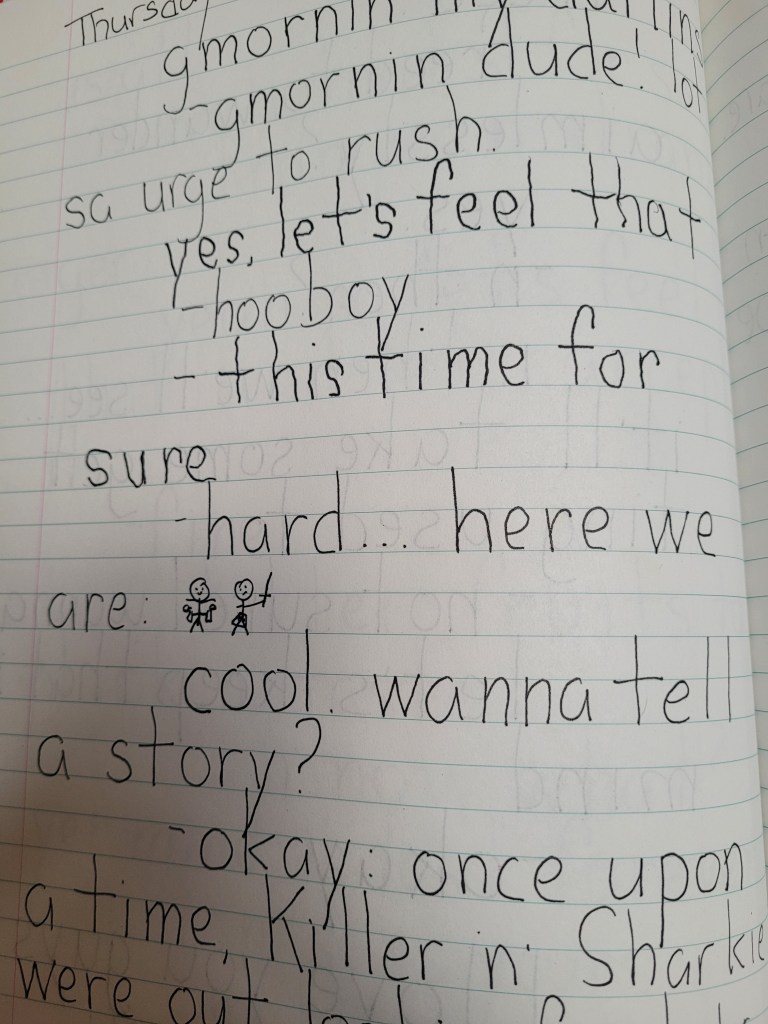 gmornin my
-gmornin dude! lot
sa urge to rush.
yes, let's feel that
-hooboy
-this time for
sure
-hard... here we
are:
cool. wanna tell
a story?
-okay: once upon
a time, Killer n' Sharkie
were out